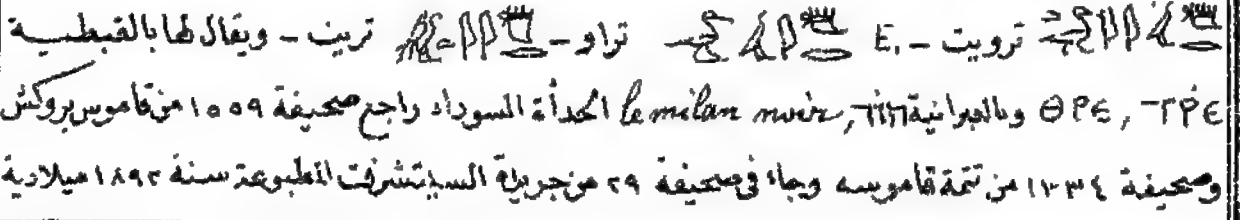 ترويت – .E تراو – تريت – ويقال لها بالقبطية
ⲧⲣⲉ , ⲑⲣⲉ وبالعبرانية le milan noir, الحدأة السوداء راجع صحيفة ١٥٥٩ من قاموس بروكش
وصحيفة ١٣٣٤ من تتمة قاموسه وجاء في صحيفة ٢٩ من جريدة السيتشرفت المطبوعة سنة ١٨٩٢ ميلادية